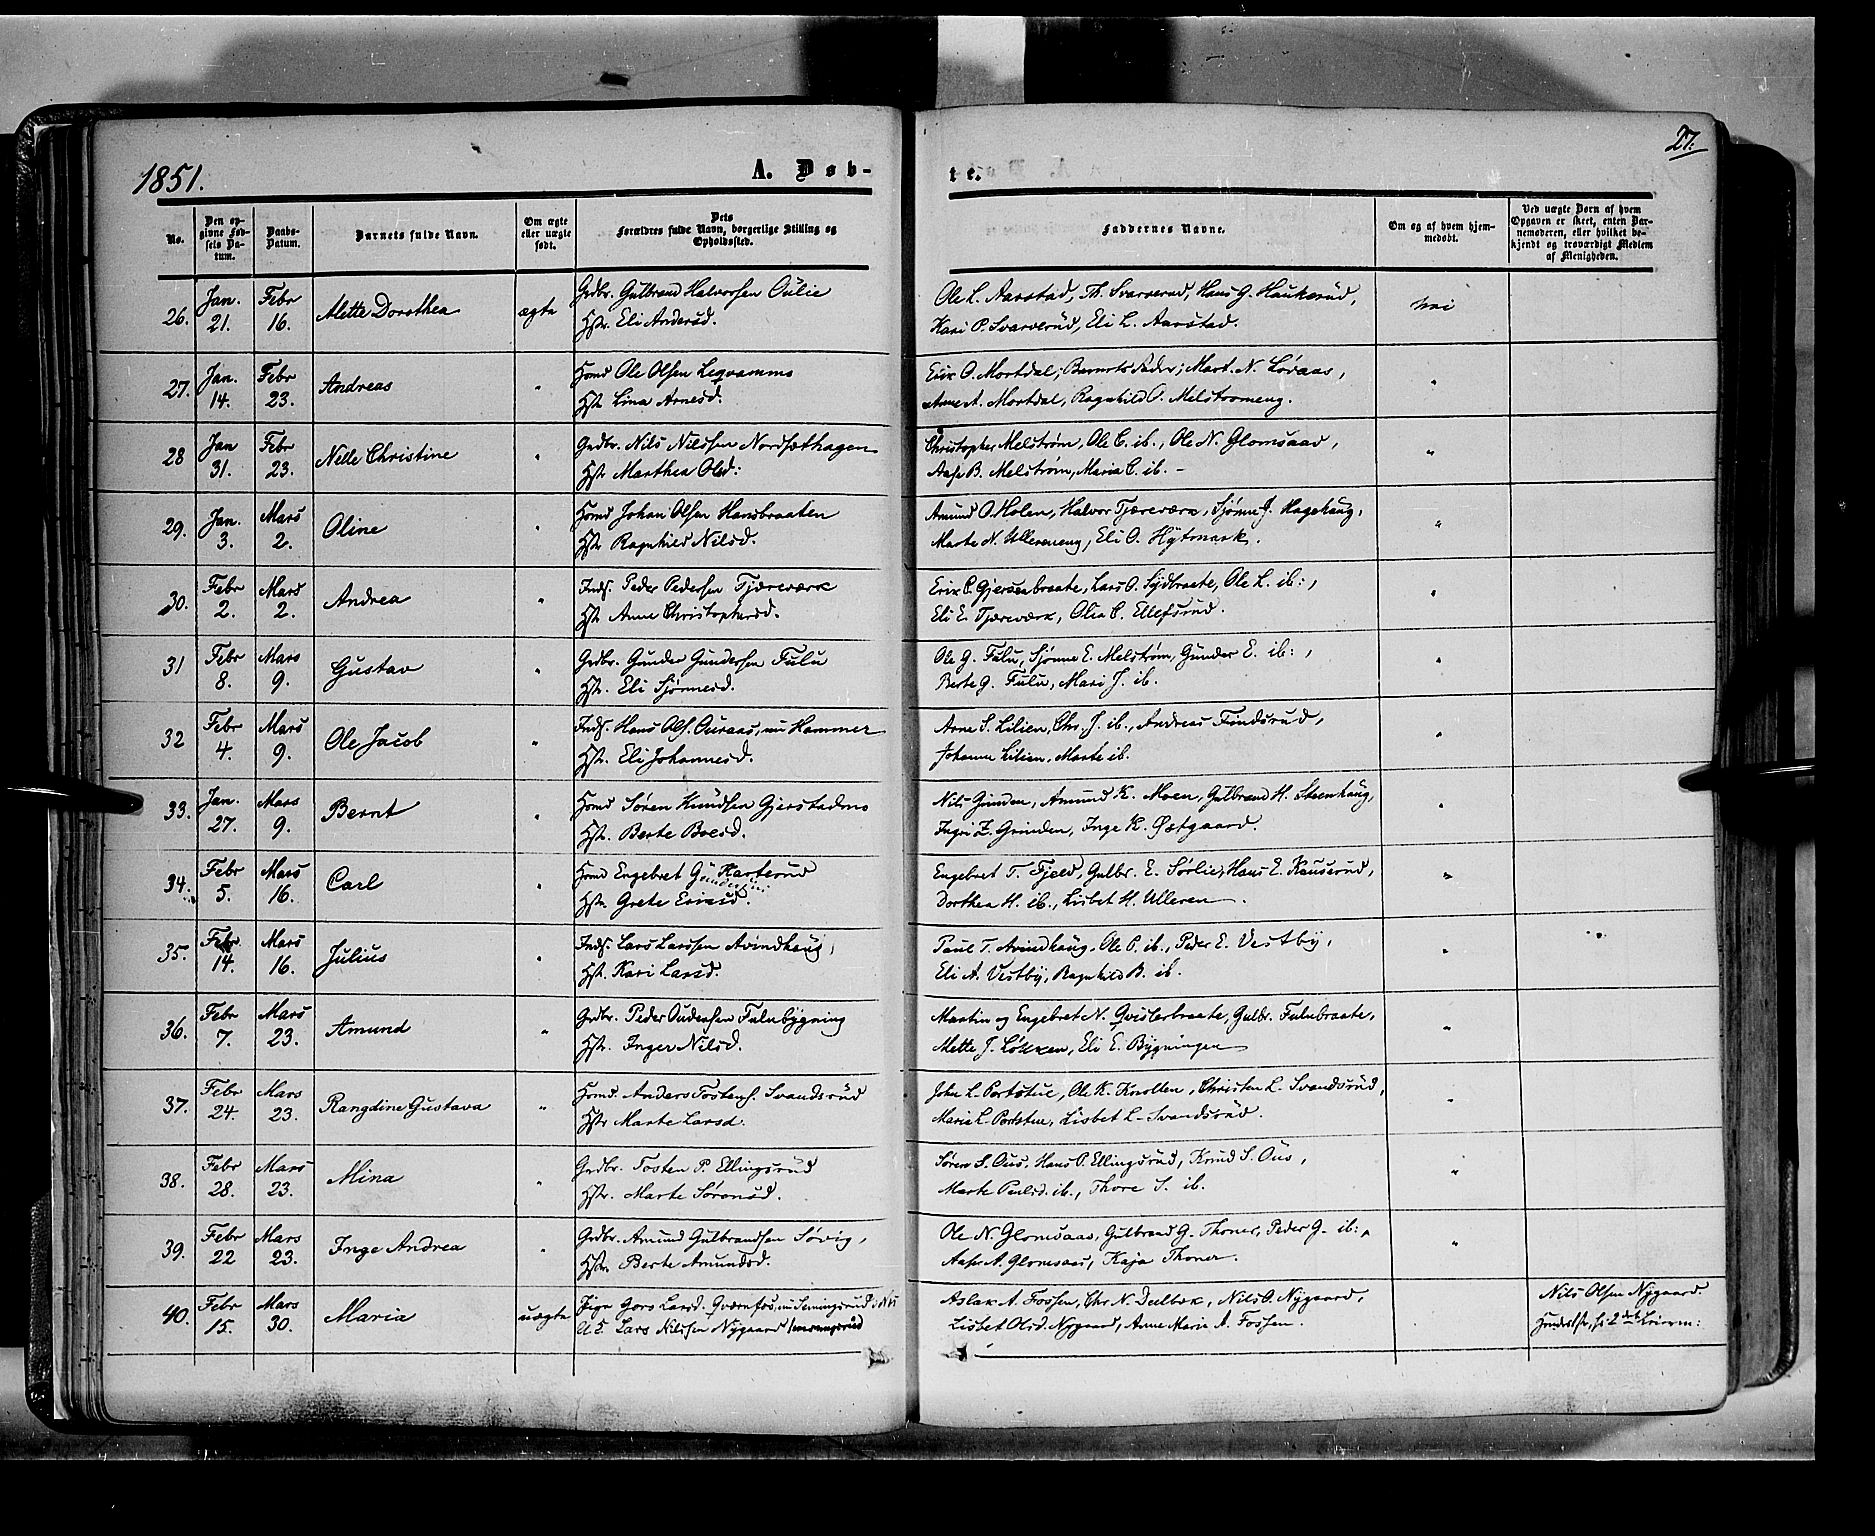 1851.
A. Døb-
te.
27.
No.
Den op-
givne Fød-
sels Da-
tum.
Daabs-
Datum.
Barnets fulde Navn.
Om ægte
eller uægte
født.
Dets
Forældres fulde Navn, borgerlige Stilling og
Opholdssted.
Faddernes Navne.
Om og af hvem hjem-
medøbt.
Ved uægte Børn af hvem
Opgaven er skeet, enten Bar-
nemoderen, eller hvilket be-
kjendt og troværdigt Medlem
af Menigheden.
26. Jan. 21. Febr 16. Mette Dorothea ægte
Grdbr. Gulbrand Halvorsen Oulie
Hstr. Eli Andersd.
Ole L. Aarstad, Th. Svarverud, Hans G. Haukerud,
Kari P. Svarverud, Eli L. Aarstad.
nei
27. Jan. 14. Febr 23. Andreas "
Hmd Ole Olsen Legvammo
Hstr. Lina Arnesd.
Erik O. Mortdal, Barnets Fader, Mart. N. Løvaas,
Anne A. Mortdal, Ragnhild O. Melstrømeng.
28 Jan 31. Febr 23. Nelle Christine "
Grdbr. Nils Nilssen Nordsethagen
Hstr Marthea Olsd:
Christopher Melstrøm, Ole C. ib., Ole N. Glomsaas,
Aase B. Melstrøm, Maria C. ib. -
29. Jan. 3. Mars 2. Oline "
Hmd Johan Olsen Hansbraaten
Hstr Ragnhild Nilsd.
Amund O. Holen, Halvor Tjæreværk, Sjønne J. Hagehaug,
Marte N. Ullereneng, Eli O. Hytmark.
30. Febr 2. Mars 2. Andrea "
Inds. Peder Pedersen Tjæreværk
Hstr Anne Christophersd.
Erik P. Gjersenbraate, Lars O. Sydbraate, Ole L. ib:,
Eli E. Tjæreværk, Olea C. Ellefsrud.
31 Febr 8. Mars 9. Gustav "
Grdbr. Gunder Gundersen Fulu
Hstr. Eli Sjønnesd.
Ole G. Fulu, Sjønne E. Melstrøm, Gunder E. ib:,
Berte G. Fulu, Mari J. ib.
32 Febr 4. Mars 9. Ole Jacob "
Inds. Hans Ols. Ouraas, nu Hammer
Hstr. Eli Johannesd.
Arne S. Lilien, Chr. J. ib., Andreas Findsrud,
Johanne Lilien, Marte ib.
33. Jan. 27. Mars 9. Bernt "
Hmd Søren Knudsen Gjerstadmo
Hstr. Berte Boesd.
Nils Grinden, Amund K. Moen, Gulbrand H. Steenhaug,
Ingri Z. Grinden, Inge K. Østgaard.
34. Febr 5. Mars 16. Carl "
Hmd Engebret Gundersen Harterud
Hstr. Grete Ericsd.
Engebret T. Fjeld, Gulbr. E. Sørlie, Hans E. Kauserud,
Dorthea H. ib., Lisbet H. Ulleren.
35. Febr. 14. Mars 16. Julius "
Inds. Lars Larssen Avindhaug,
Hstr. Kari Larsd.
Paul T. Avindhaug, Ole P. ib., Peder E. Vestby,
Eli A. Vestby, Ragnhild B. ib.
36. Febr 7. Mars 23. Amund "
Grdbr. Peder Oudensen Fulubygning
Hstr. Inger Nilsd.
Martin og Engebret N. Qvisterbraate, Gulbr. Fulubraate,
Mette J. Løkken, Eli E. Bygningen
37. Febr 24. Mars 23. Rangdine Gustava "
Hmd. Anders Tostens. Svandsrud
Hstr Marte Larsd.
John L. Portstue, Ole K. Knollen, Christen L. Svandsrud,
Maria L. Portstue, Lisbet L. Svandsrud.
38. Febr 28. Mars 23. Mina "
Grdbr. Tosten P. Ellingsrud
Hstr. Marte Sørensd.
Søren S. Ous, Hans P. Ellingsrud, Knud S. Ous,
Marte Paulsd. ib., Thore S. ib.
39. Febr 22 Mars 23. Inge Andrea "
Grdbr. Amund Gulbrandsen Søvig,
Hstr. Berte Amundsd.
Ole N. Glomsaas, Gulbrand G. Thoner, Peder G. ib:,
Aase A. Glomsaas, Kaja Thoner.
40. Febr 15. Mars 30. Maria uægte
Pige Goro Larsd. Qværnfos, nu Semingsrud
U. K. Lars Nilssen Nygaard
Aslak A. Fossen, Chr. N. Dulbæk, Nils O. Nygaard,
Lisbet Olsd. Nygaard, Anne Marie A. Fossen.
Nils Olsen Nygaard.